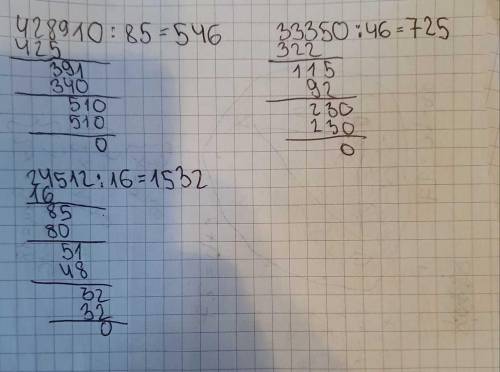 428910:85=546
425
391
340
510
510
0
33350:46=725
322
115
92
230
230
0
24512:16=1532
16
85
80
51
48
32
32
0